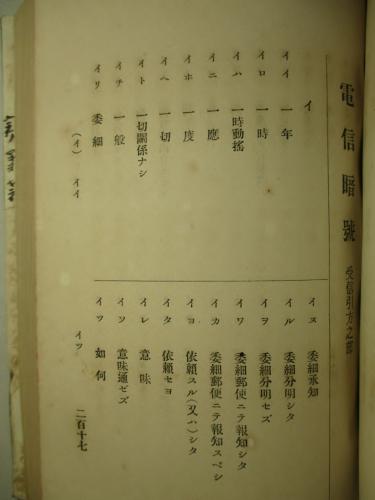 電信暗號 受信引方之部
イ
イイ 一年
イロ 一時
イハ 一時動搖
イニ 一應
イホ 一度
イヘ 一切
イト 一切關係ナシ
イチ 一般
イリ 委細
イヌ 委細承知
イル 委細分明シタ
イヲ 委細分明セズ
イワ 委細郵便ニテ報知シタ
イカ 委細郵便ニテ報知スベシ
イヨ 依賴スル(又ハ)シタ
イタ 依賴セヨ
イレ 意味
イソ 意味通ゼズ
イツ 如何
(イ) イイ
イツ
二百十七